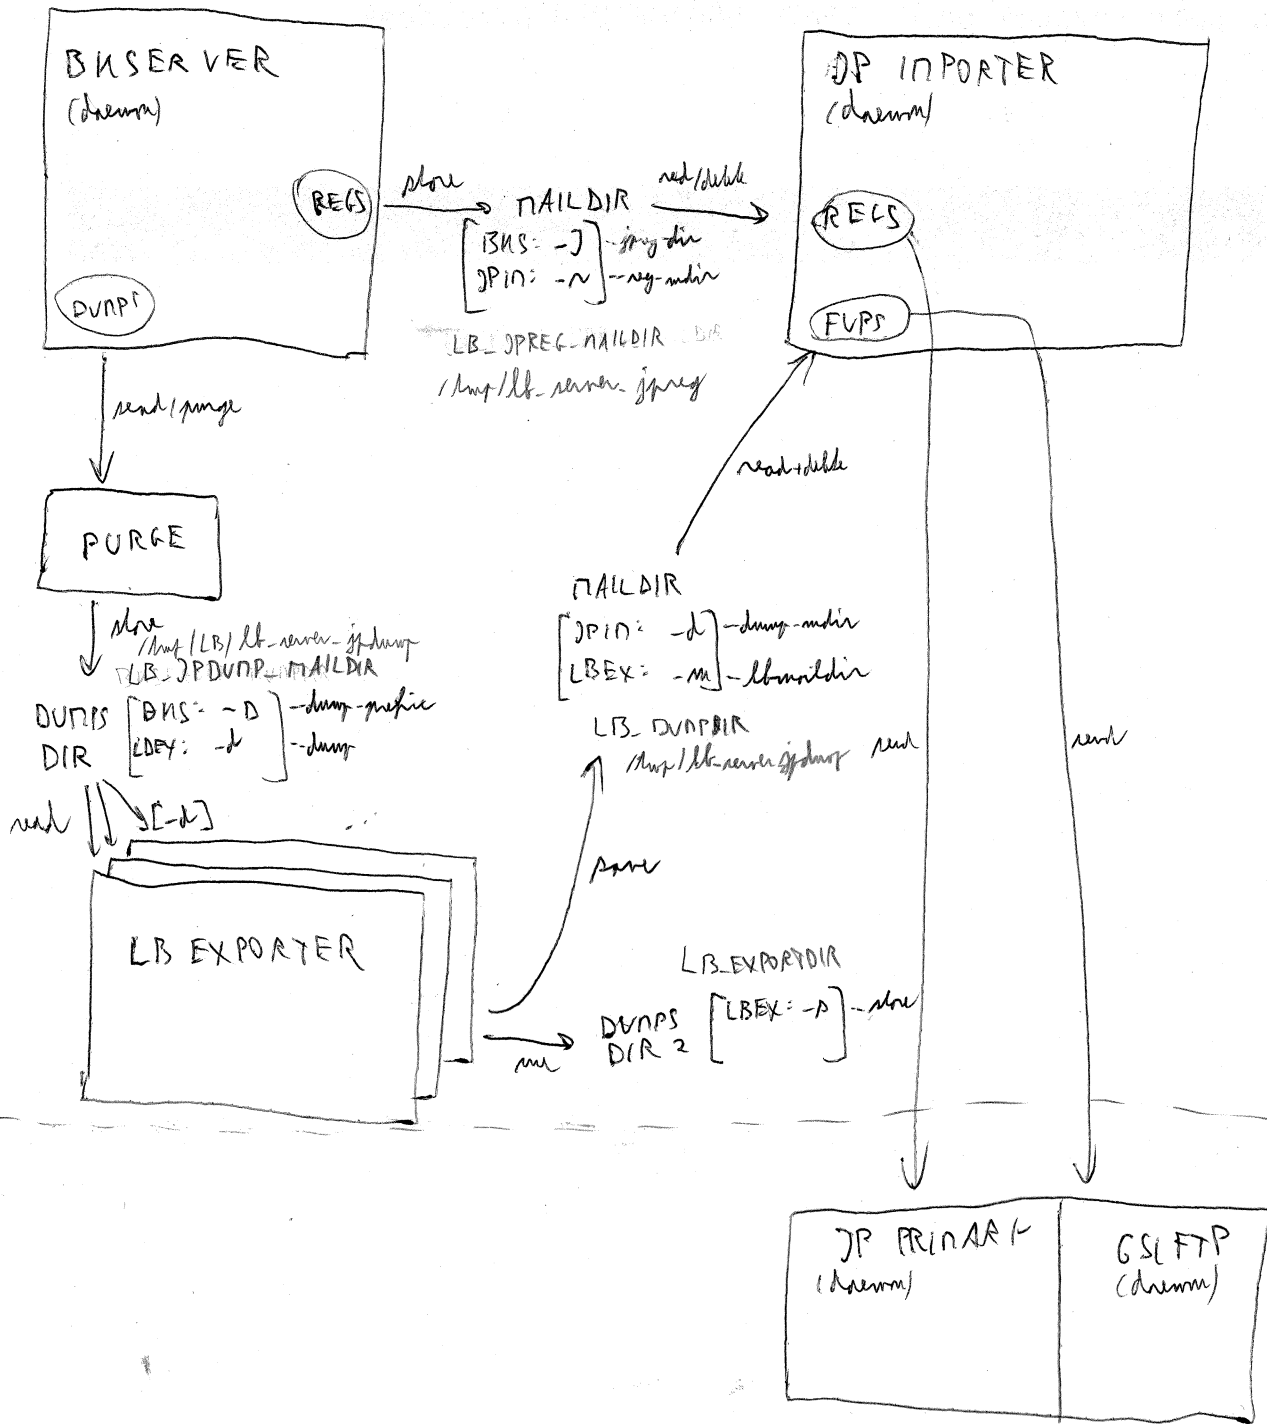 BKSERVER
(daemon)
REGS
DUMPS
store
MAILDIR
read/delete
[BKS: -J] --jpreg-dir
[JPIM: -r] --reg-mdir
LB_JPREG_MAILDIR
/tmp/lb_server_jpreg
JP IMPORTER
(daemon)
REGS
FUPS
send/purge
PURGE
store
/tmp/LB/lb_server_jpdump
LB_JPDUMP_MAILDIR
DUMPS DIR
[BKS: -D] --dump-prefix
[LBEX: -d] --dump
read
[-d]
LB EXPORTER
read+delete
MAILDIR
[JPIM: -d] --dump-mdir
[LBEX: -m] --lbmaildir
LB_DUMPDIR
/tmp/lb_server_jpdump
send
send
save
LB_EXPORTDIR
DUMPS DIR 2
[LBEX: -s] --store
JP PRIMARY
(daemon)
GSIFTP
(daemon)